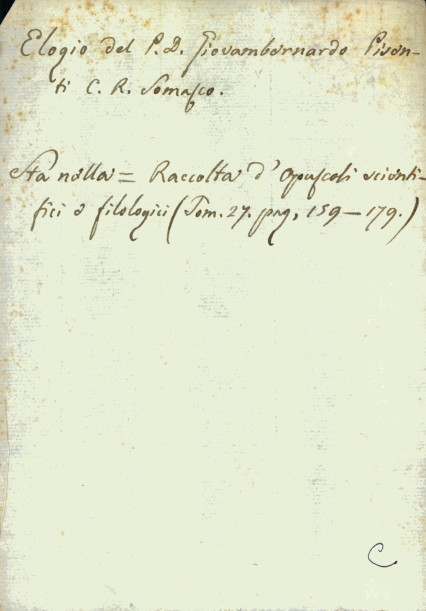 Elogio del P. D. Giovambernardo Pisen-
ti C. R. Somasco.
Sta nella = Raccolta d' Opuscoli scienti-
fici e filologici (Tom. 27. pag. 159 — 179.)
C